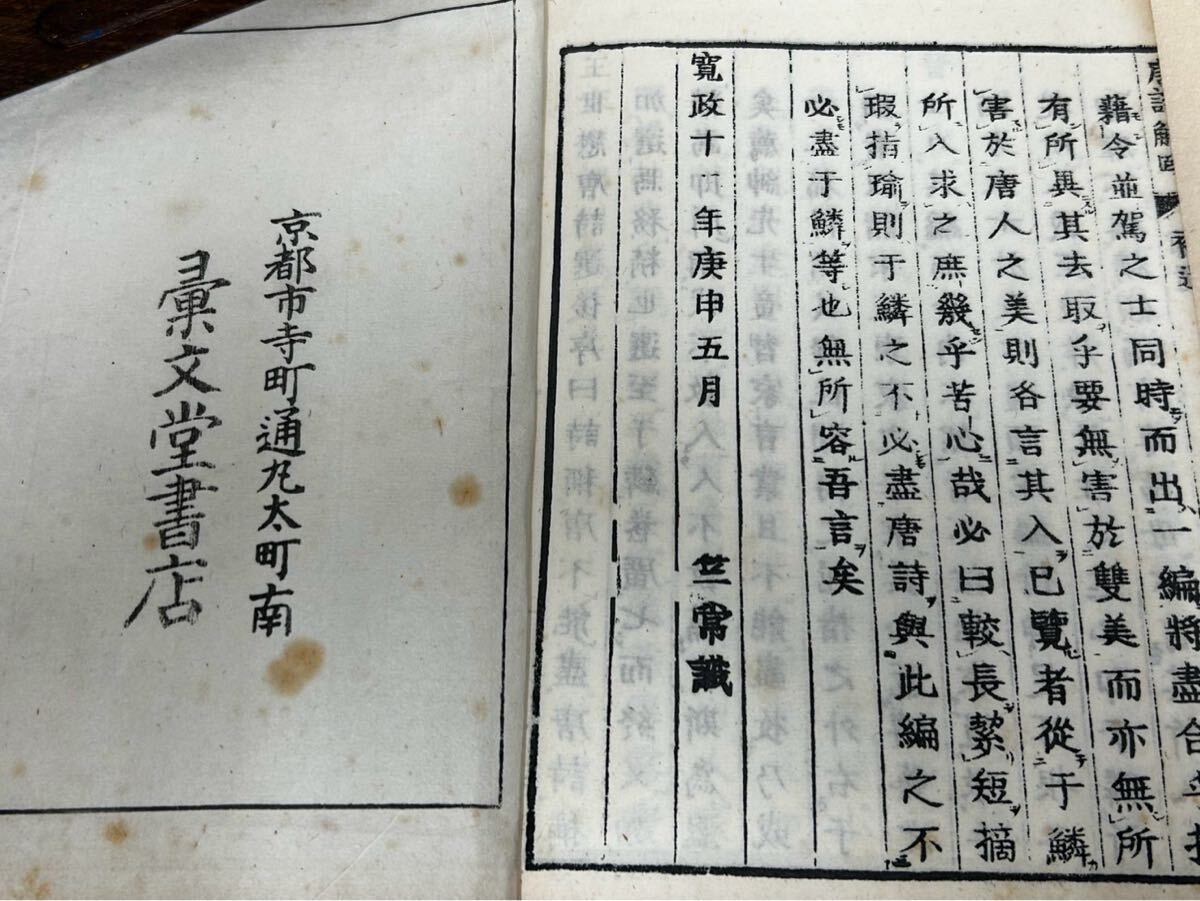 唐詩解頤
補遺
藉令並駕之士同時而出一編將盡合乎
有所異其去取乎要無害於雙美而亦無所
害於唐人之美則各言其入已覽者從于鱗
所入求之庶幾乎苦心哉必曰較長絜短摘
瑕指瑜則于鱗之不必盡唐詩與此編之不
必盡于鱗等也無所容吾言矣
寬政十二年庚申五月 竺常識
京都市寺町通丸太町南
彙文堂書店